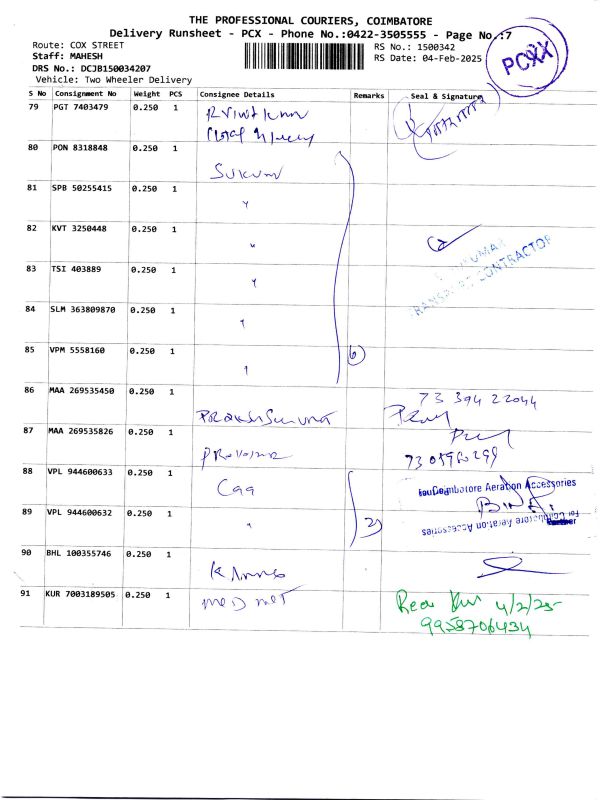 THE PROFESSIONAL COURIERS, COIMBATORE
Delivery Runsheet - PCX - Phone No.:0422-3505555 - Page No.:7
Route: COX STREET
RS No.: 1500342
Staff: MAHESH
RS Date: 04-Feb-2025
DRS No.: DCJB150034207
Vehicle: Two Wheeler Delivery
PCXX
S No Consignment No Weight PCS Consignee Details Remarks Seal & Signature
79 PGT 7403479 0.250 1
80 PON 8318848 0.250 1
Sukumar
81 SPB 50255415 0.250 1
"
82 KVT 3250448 0.250 1
"
83 TSI 403889 0.250 1
"
TRANSPORT CONTRACTOR
84 SLM 363809870 0.250 1
"
85 VPM 5558160 0.250 1
"
6
86 MAA 269535450 0.250 1
73 394 22044
87 MAA 269535826 0.250 1
88 VPL 944600633 0.250 1
Caa
Coimbatore Aeration Accessories
89 VPL 944600632 0.250 1
"
2
For Coimbatore Aeration Accessories
Partner
90 BHL 100355746 0.250 1
91 KUR 7003189505 0.250 1
MED MET
4/2/25
9958706434